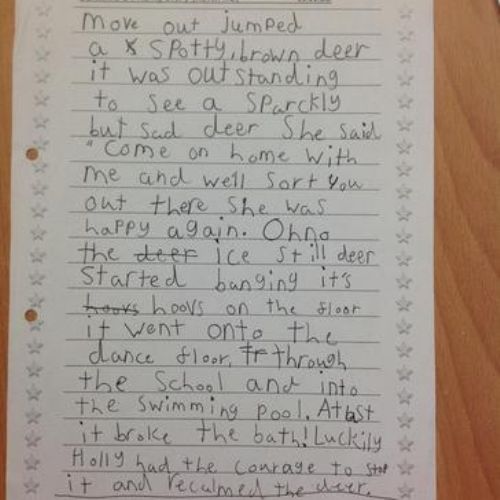 move out jumped
a x spotty, brown deer
it was outstanding
to see a sparckly
but sad deer She said
"Come on home with
me and we'll sort you
out there she was
happy again. Ohno
the deer ice still deer
Started banging it's
hoovs hoovs on the floor
it went onto the
dance floor, Tr through
the School and into
the swimming pool. At last
it broke the bath! Luckily
Holly had the courage to stop
it and recalmed the deer.